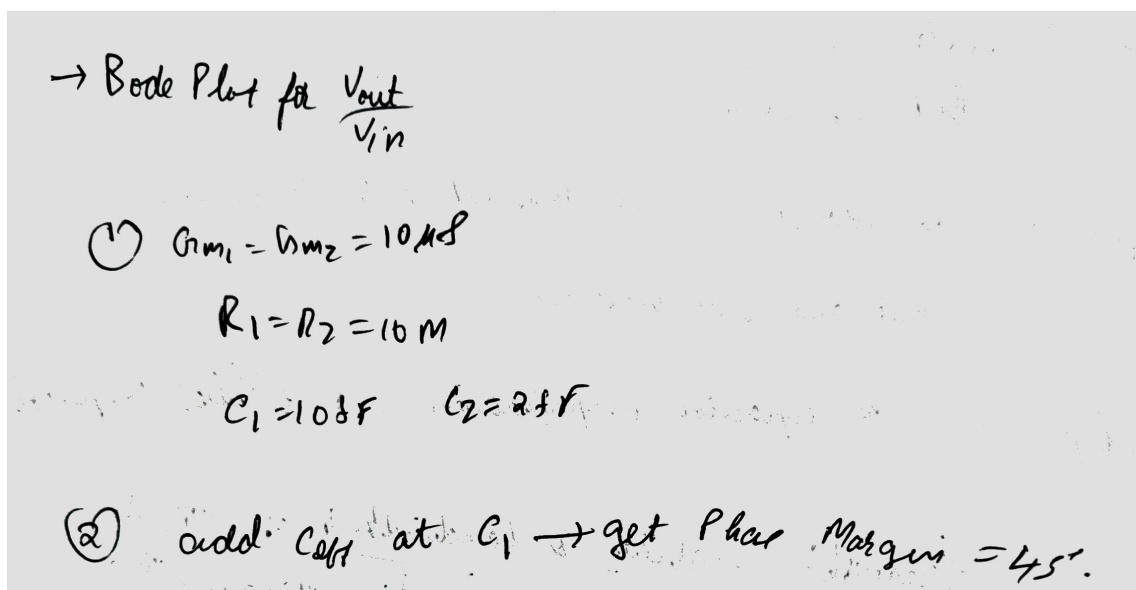 → Bode Plot for Vout/Vin
① Gm1 = Gm2 = 10 µS
R1 = R2 = 10 M
C1 = 10fF C2 = 2fF
② add Ceff at C1 → get Phase Margin = 45°.